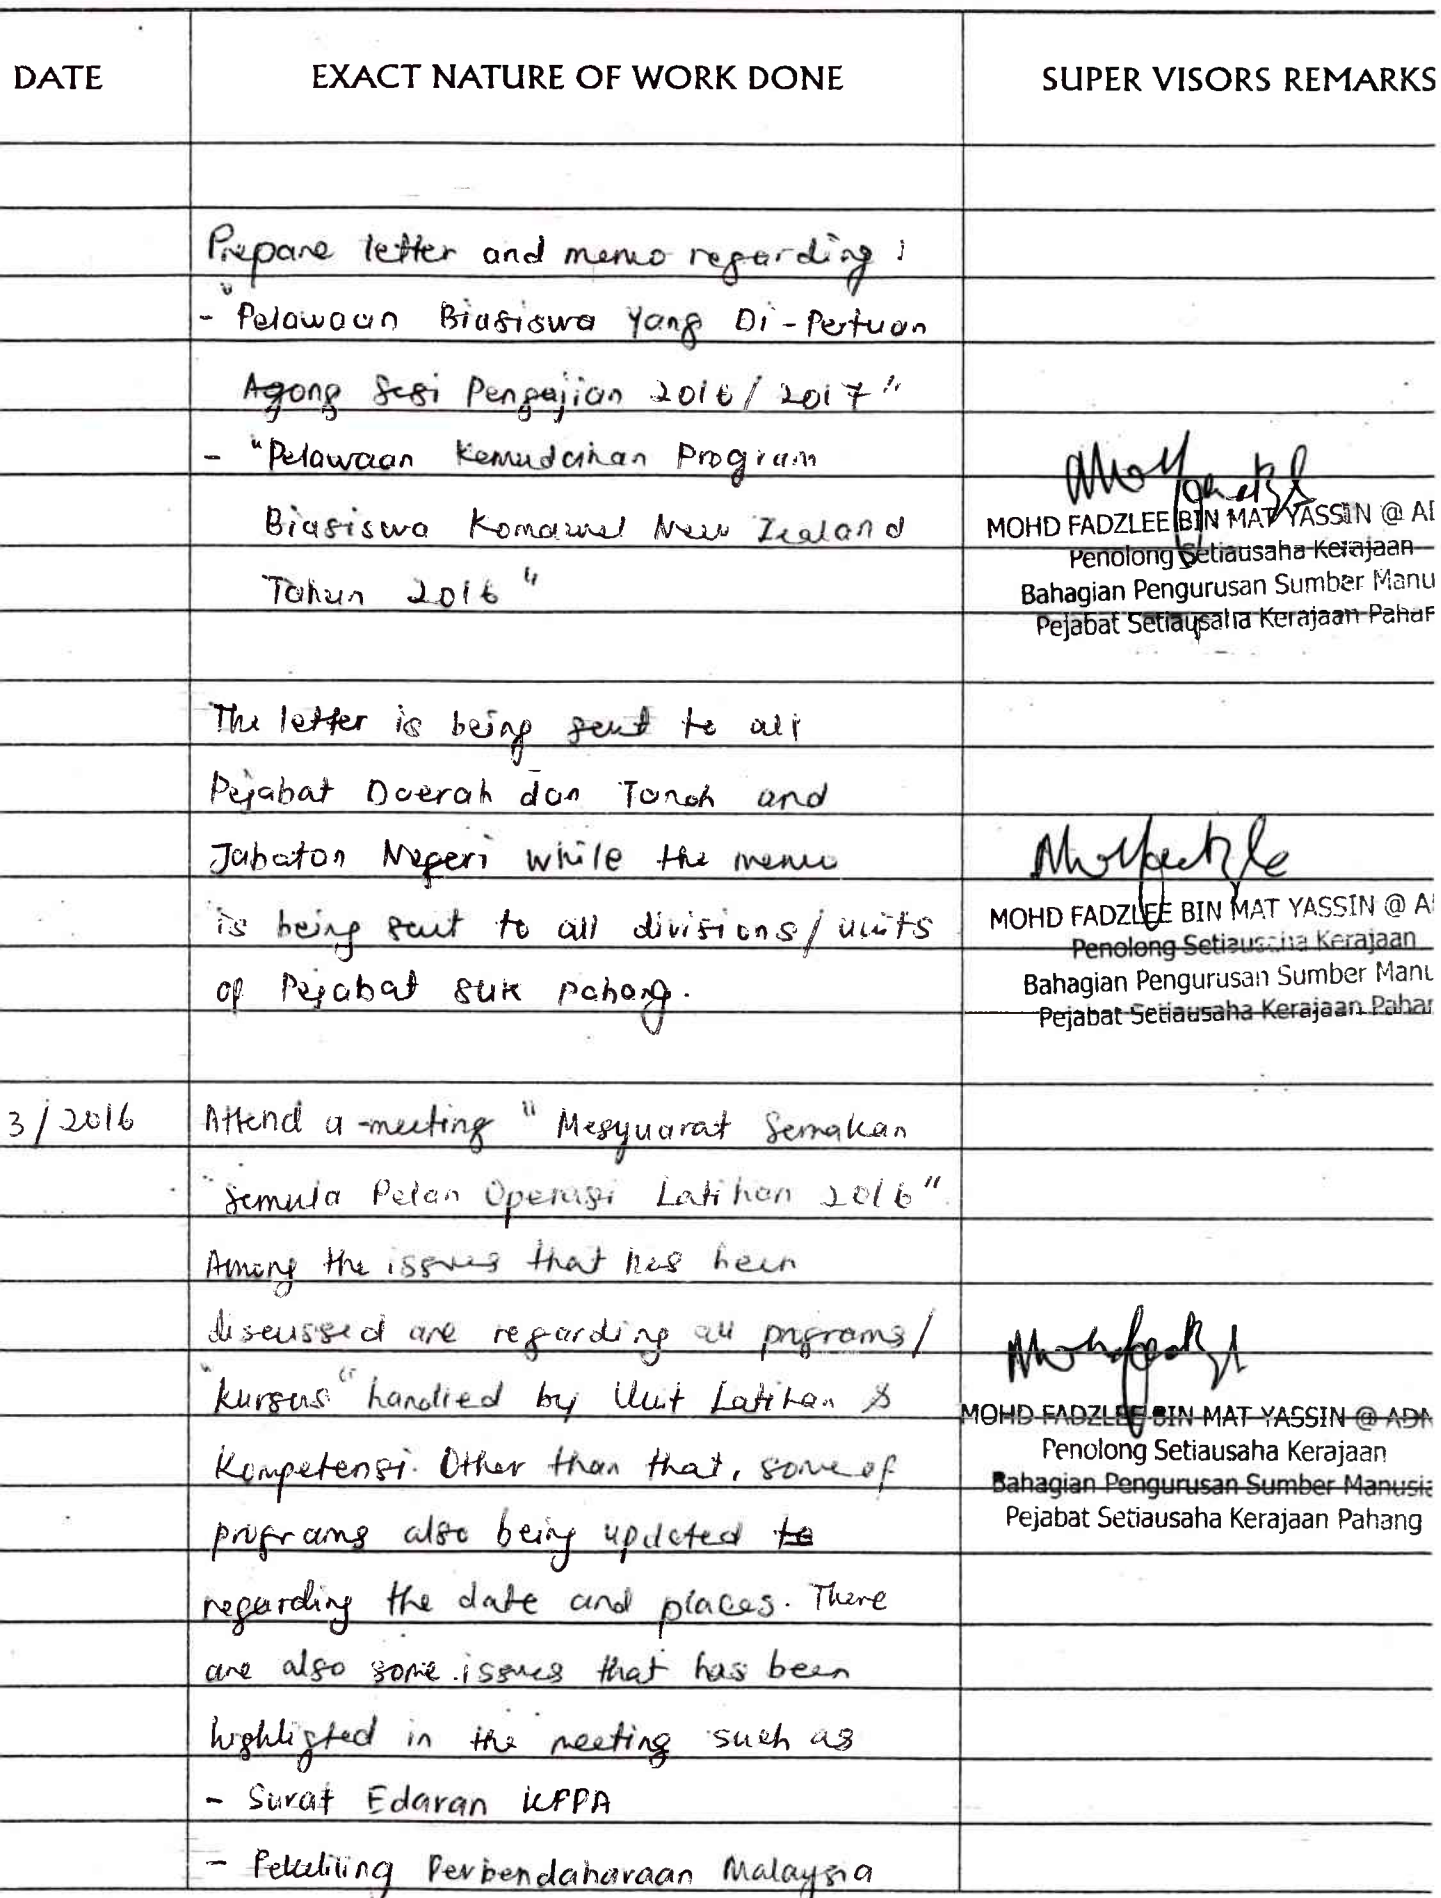 DATE EXACT NATURE OF WORK DONE SUPER VISORS REMARKS
Prepare letter and memo regarding :
- "Pelawaan Biasiswa Yang Di-Pertuan
Agong Sesi Pengajian 2016/2017"
- "Pelawaan Kemudahan Program
Biasiswa Komanwel New Zealand
Tahun 2016"
MOHD FADZLEE BIN MAT YASSIN @ AD
Penolong Setiausaha Kerajaan
Bahagian Pengurusan Sumber Manu
Pejabat Setiausaha Kerajaan Pahan
The letter is being sent to all
Pejabat Daerah dan Tanah and
Jabatan Negeri while the memo
is being sent to all divisions/units
of Pejabat SUK Pahang.
MOHD FADZLEE BIN MAT YASSIN @ A
Penolong Setiausaha Kerajaan
Bahagian Pengurusan Sumber Manu
Pejabat Setiausaha Kerajaan Pahan
3/2016 Attend a meeting "Mesyuarat Semakan
Semula Pelan Operasi Latihan 2016"
Among the issues that has been
discussed are regarding all programs/
"kursus" handled by Unit Latihan &
Kompetensi. Other than that, some of
programs also being updated to
regarding the date and places. There
are also some issues that has been
highligted in the meeting such as
- Surat Edaran KPPA
- Pekeliling Perbendaharaan Malaysia
MOHD FADZLEE BIN MAT YASSIN @ ADN
Penolong Setiausaha Kerajaan
Bahagian Pengurusan Sumber Manusia
Pejabat Setiausaha Kerajaan Pahang